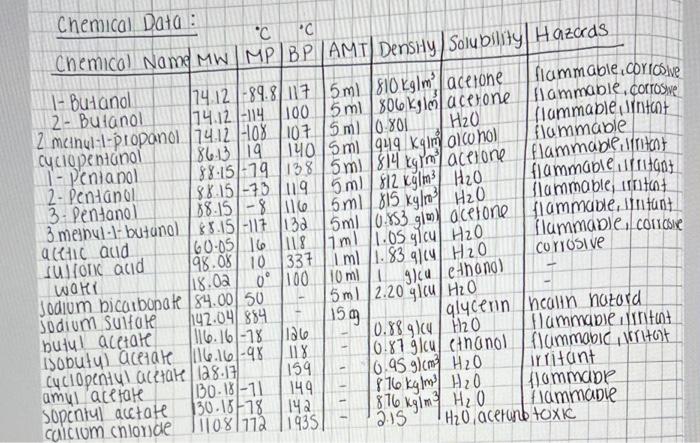 Chemical Data:
°C °C
Chemical Name MW MP BP AMT Density Solubility Hazards
1-Butanol 74.12 -89.8 117 5ml 810 kg/m³ acetone flammable, corrosive
2-Butanol 74.12 -114 100 5ml 806 kg/m³ acetone flammable, corrosive
2 methyl-1-propanol 74.12 -108 107 5ml 0.801 H2O flammable, irritant
cyclopentanol 86.13 19 140 5ml 949 kg/m³ alcohol flammable
1-Pentanol 88.15 -79 138 5ml 814 kg/m³ acetone flammable, irritant
2-Pentanol 88.15 -73 119 5ml 812 kg/m³ H2O flammable, irritant
3-Pentanol 88.15 -8 116 5ml 815 kg/m³ H2O flammable, irritant
3 methyl-1-butanol 88.15 -117 132 5ml 0.853 g/ml acetone flammable, irritant
acetic acid 60.05 16 118 7ml 1.05 g/cu H2O flammable, corrosive
sulforic acid 98.08 10 337 1ml 1.83 g/cu H2O corrosive
water 18.02 0° 100 10ml 1 g/cu ethanol -
sodium bicarbonate 84.00 50 - 5ml 2.20 g/cu H2O -
sodium sulfate 142.04 884 - 15g glycerin health hazard
butyl acetate 116.16 -78 126 - 0.88 g/cu H2O flammable, irritant
isobutyl acetate 116.16 -98 118 - 0.87 g/cu ethanol flammable, irritant
cyclopentyl acetate 128.17 159 - 0.95 g/cm³ H2O irritant
amyl acetate 130.18 -71 149 - 876 kg/m³ H2O flammable
sopentyl acetate 130.18 -78 142 - 876 kg/m³ H2O flammable
calcium chloride 1108 772 1935 - 2.15 H2O, acetone toxic